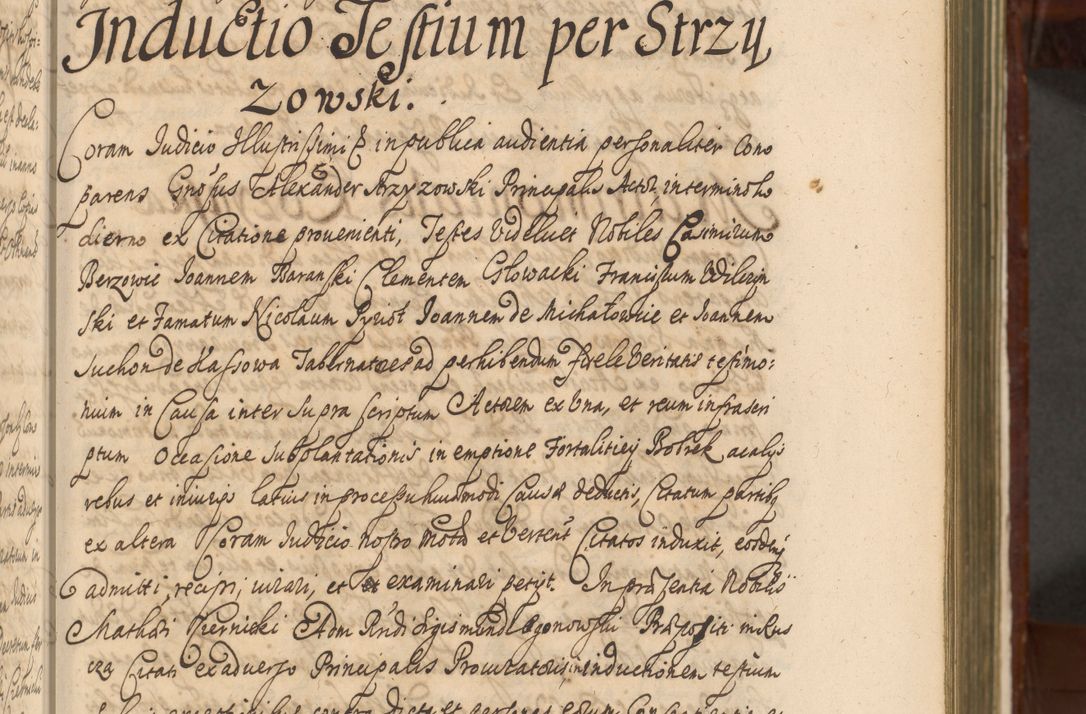 Inductio Testium per Strzy
zowski.
Coram Judicio Illustrissimi & in publica audientia personaliter Com
parens Gnosus Alexander Strzyzowski Principalis Actor, in termino ho
dierno ex Citatione provenienti, Testes videlicet Nobiles Casimirum
Berzowic Joannem Baranski Clementem Głowacki Franciscum Wilczyn
ski et Famatum Nicolaum Pyziot Joannem de Michałowice et Joannem
Suchon de Kassowa Tabernatores ad perhibendum fidele Veritatis testimo:
nium in Causa inter supra scriptum Actorem ex Una, et reum infrascri
ptum Occasione subplantationis in emptione Fortalitiey Bobrek acalys
rebus et iniurys latius in processu huiusmodi Causæ deductis, Citatum partibq
ex altera Coram Judicio nostro motâ et vertent Citatos induxit, eosdemq
admitti, recipi, iurari, et examinari petyt. In præsentia Nobilis
Mathæi Piernicki Adm Rndi Sigismundi Ogonowski Præpositi
Citati ex adverso Principalis Procuratoris, in inductionem testium